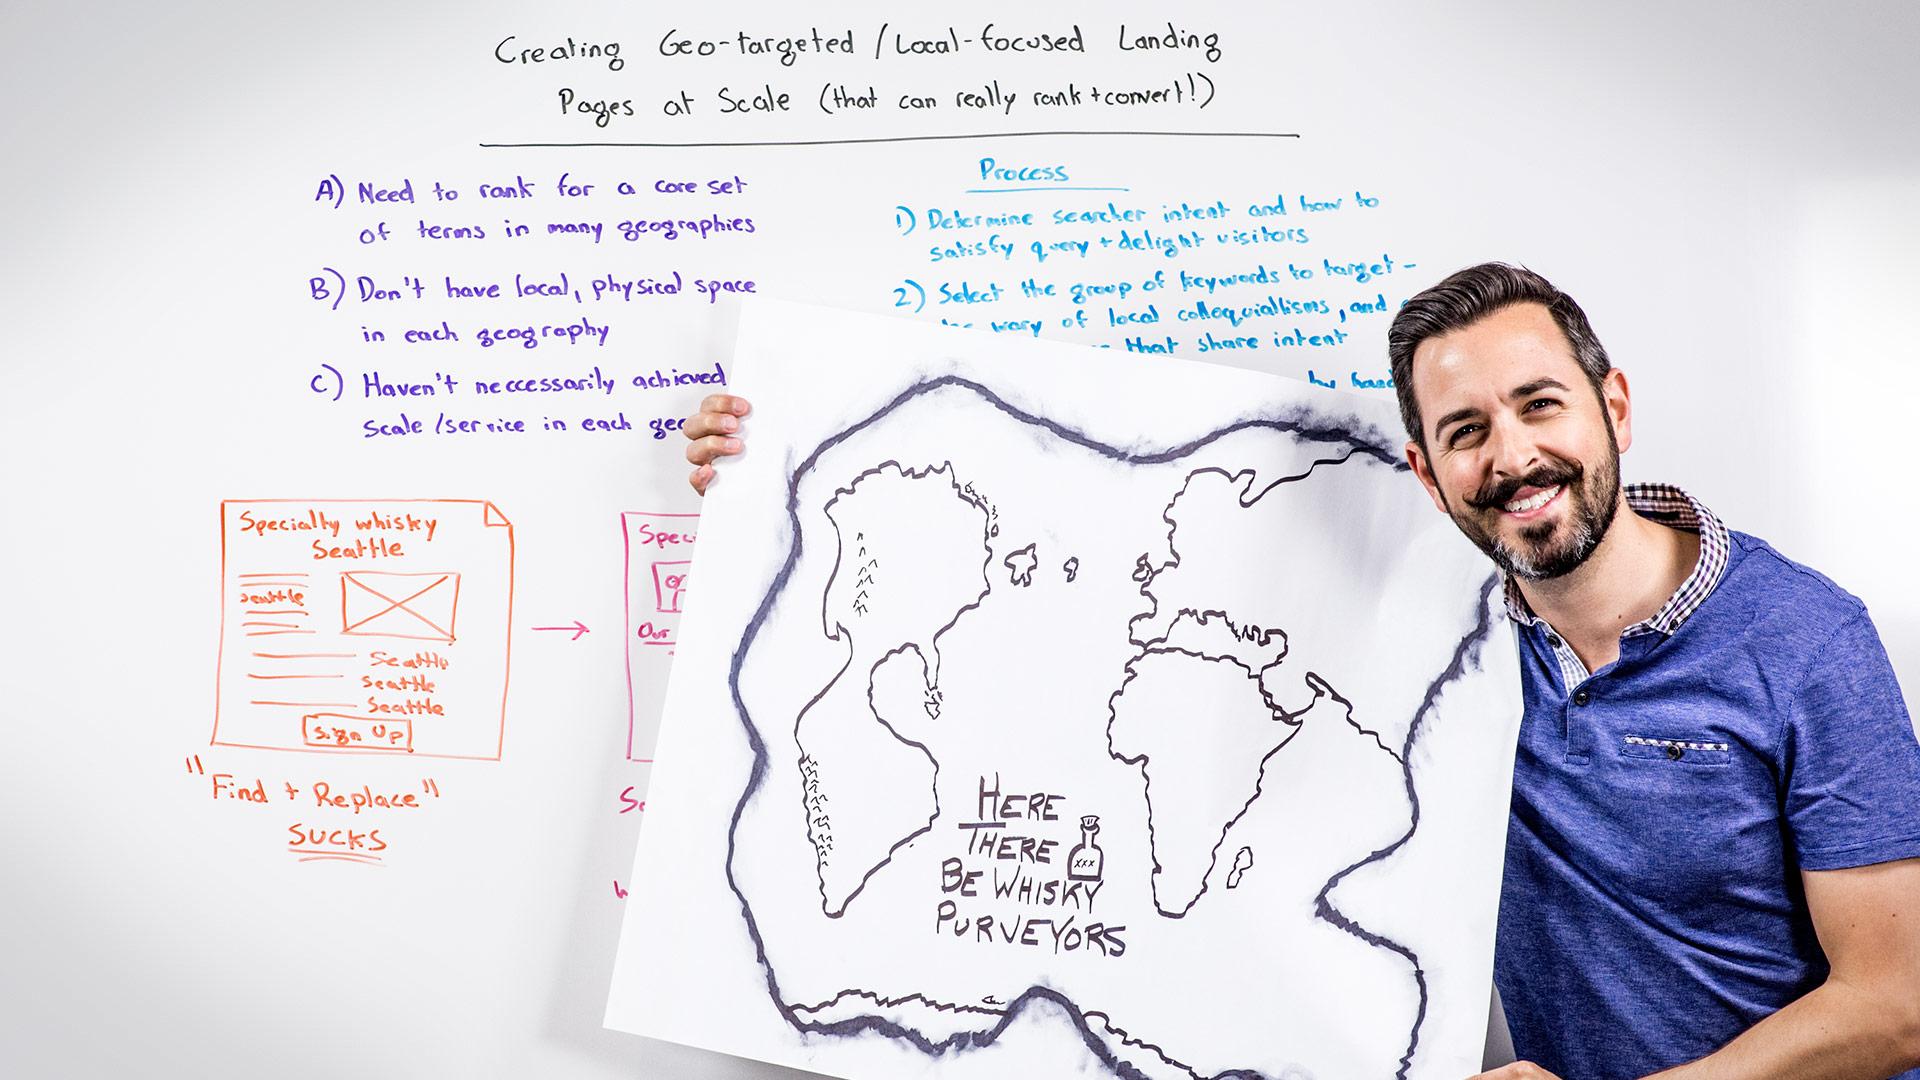 Creating Geo-targeted / Local-focused Landing
Pages at Scale (that can really rank + convert!)
A) Need to rank for a core set
of terms in many geographies
B) Don't have local, physical space
in each geography
C) Haven't neccessarily achieved
scale / service in each
Process
1) Determine searcher intent and how to
satisfy query + delight visitors
2) Select the group of keywords to target -
wary of local colloquiallisms, and
that share intent
by hand
Specialty whisky
Seattle
Seattle
Seattle
Seattle
Seattle
Sign Up
"Find + Replace"
SUCKS
Our
HERE
THERE
BE WHISKY
PURVEYORS
XXX